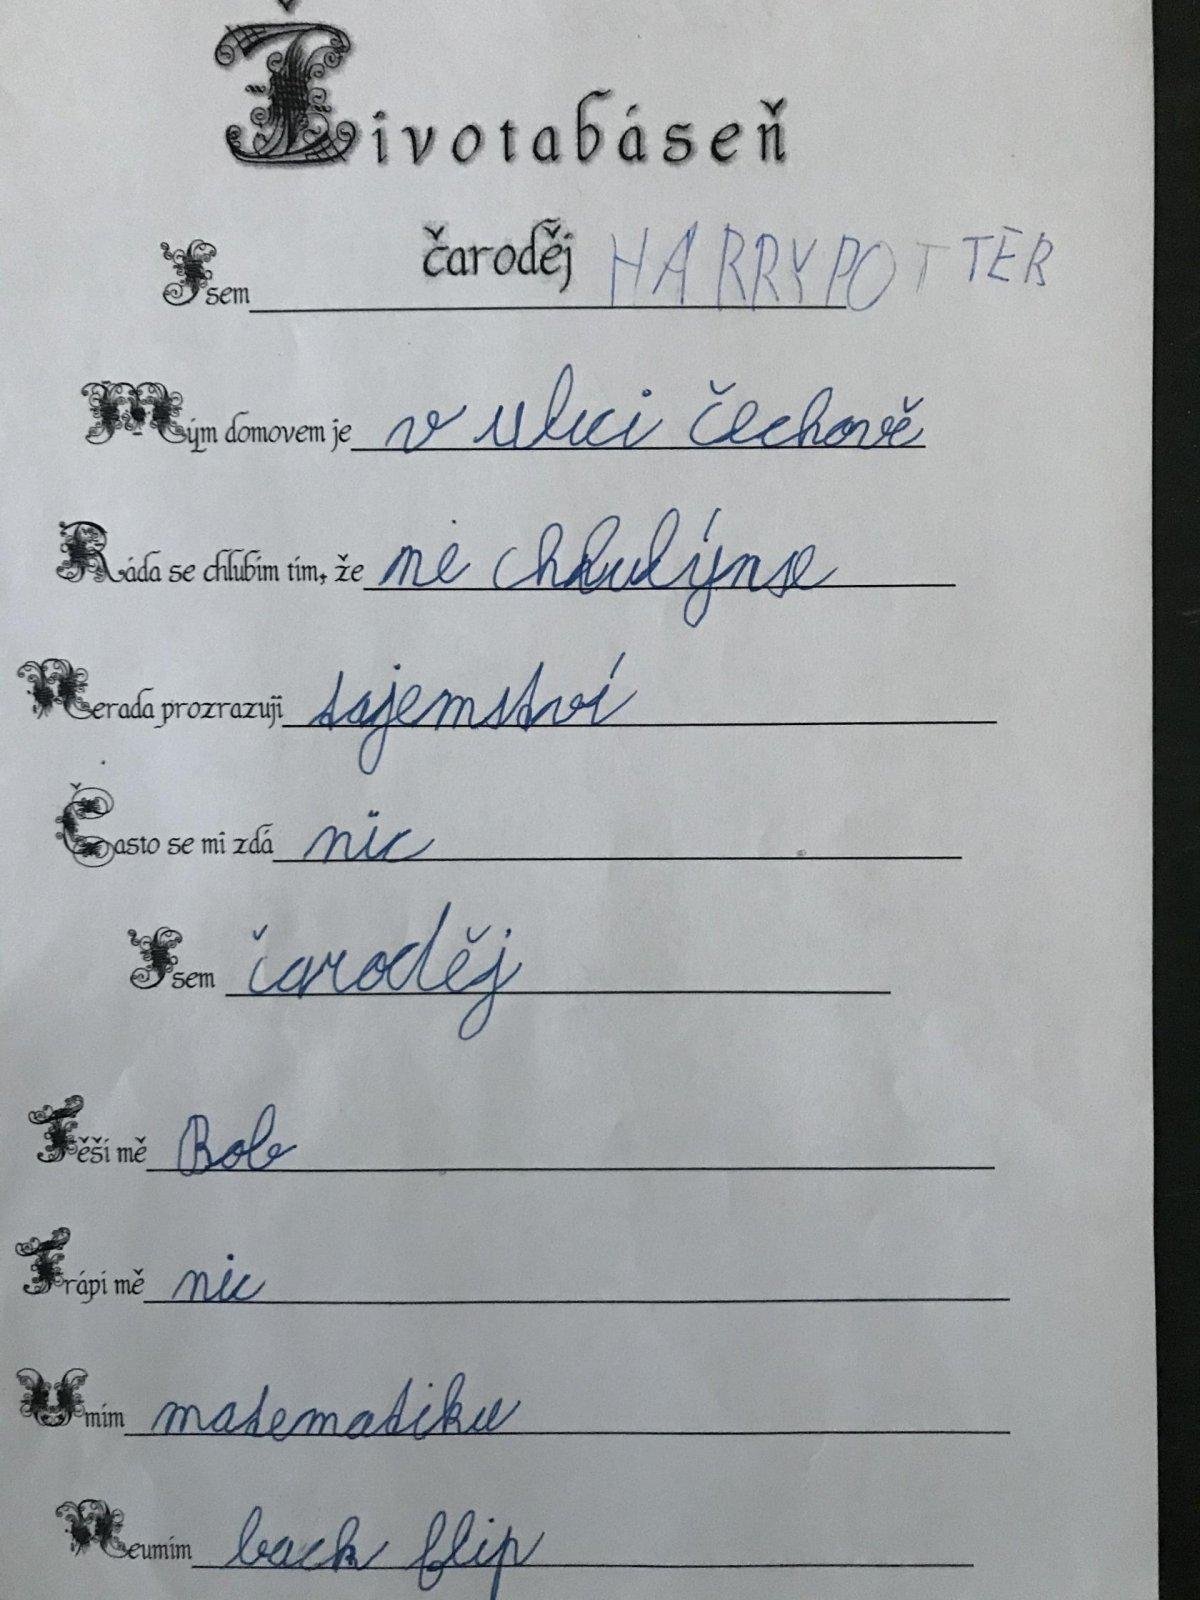 Životabáseň
Jsem čaroděj HARRY POTTER
Mým domovem je v ulici Čechově
Ráda se chlubím tím, že ne chlulýnse
Nerada prozrazuji tajemství
Často se mi zdá nic
Jsem čaroděj
Těší mě Bob
Trápí mě nic
Umím matematiku
Neumím back flip